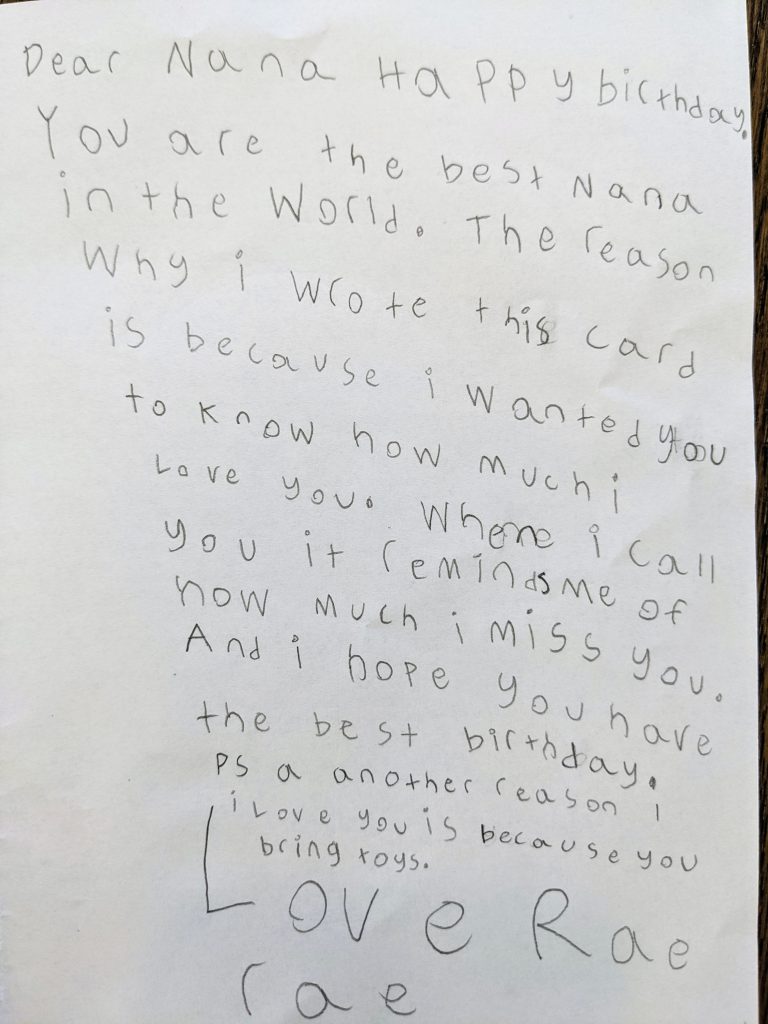 Dear Nana Happy birthday.
You are the best Nana
in the World. The reason
Why i wrote this card
is because i wanted you
to know how much i
Love you. Where i call
you it reminds me of
how much i miss you.
And i hope you have
the best birthday.
PS a another reason i
i Love you is because you
bring toys.
Love Rae
rae